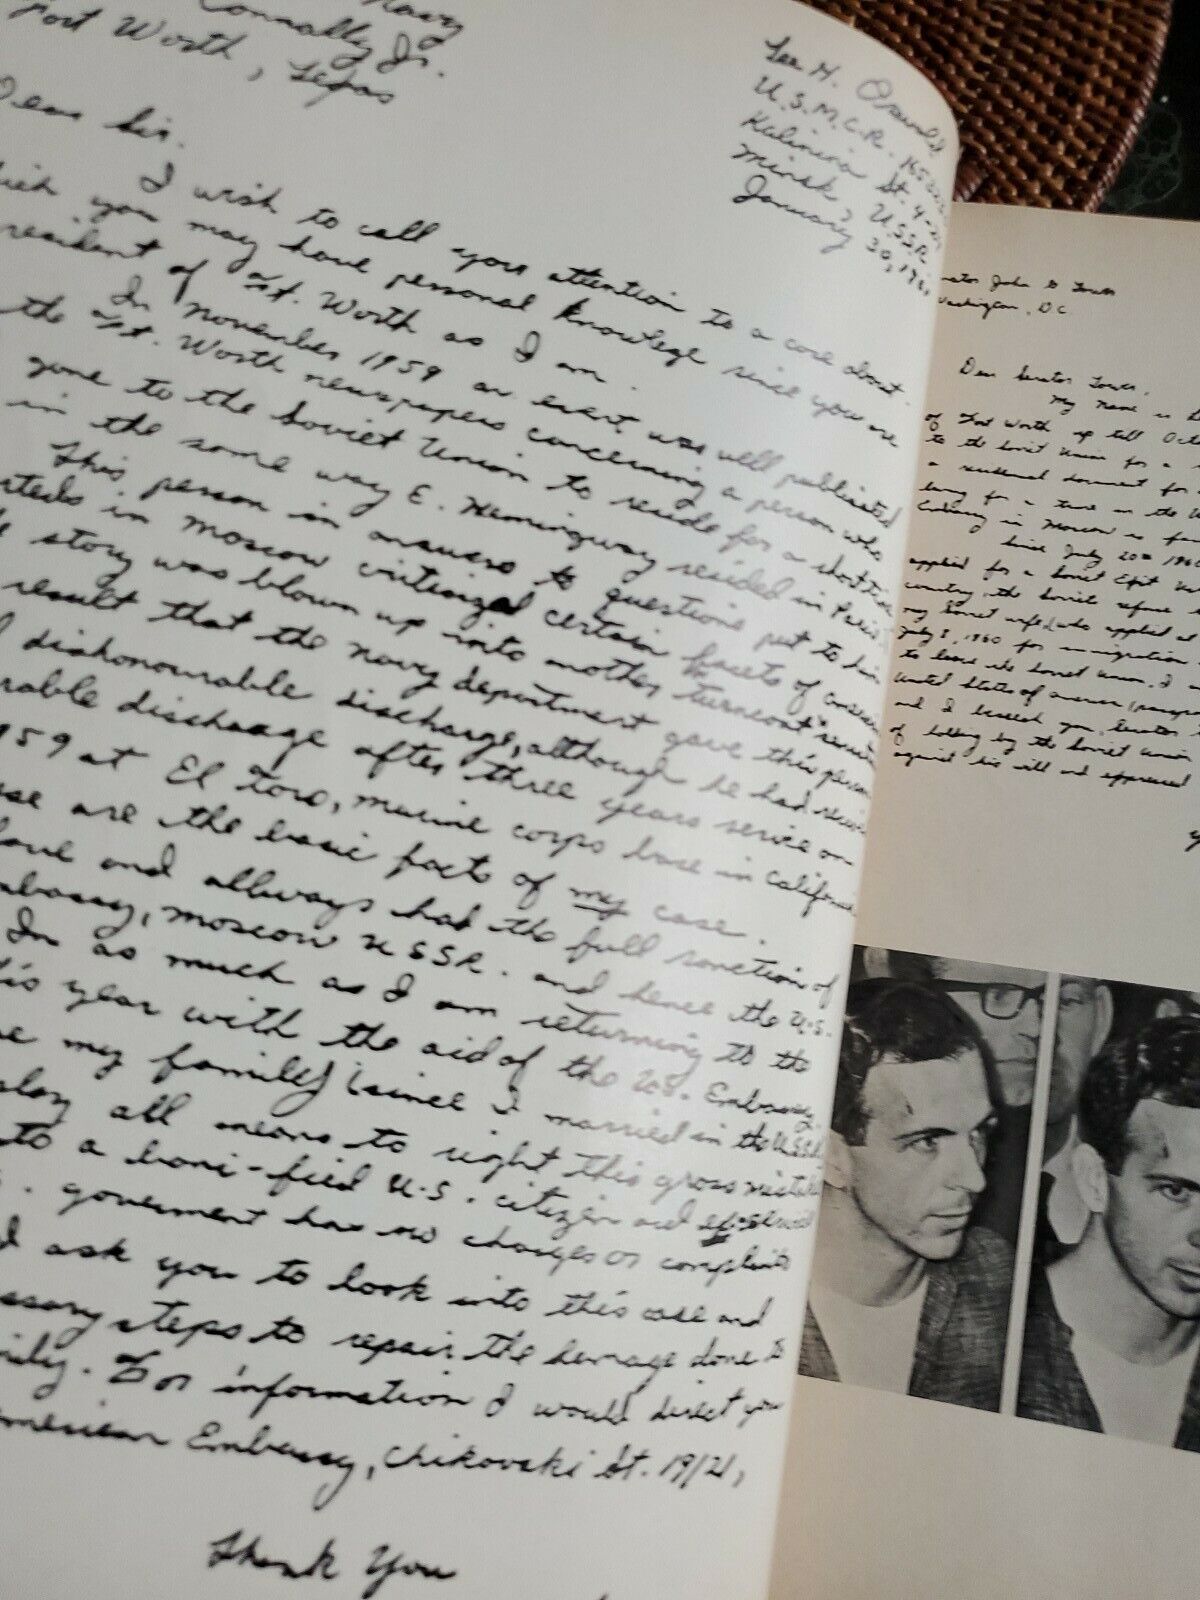 Navy
Connally Jr.
Fort Worth, Texas
Lee H. Oswald
U.S.M.C.R.
Kalinina St. 4-
Minsk, USSR
January 30, 19
Dear Sir.
I wish to call your attention to a case about
you may have personal knowlege since you are
resident of Ft. Worth as I am.
In november 1959 an event was well publicated
the Ft. Worth newspapers concerning a person who
gone to the Soviet Union to reside for a short time
in the same way E. Hemingway resided in Paris.
This person in answers to questions put to him
in Moscow criticized certain facets of
story was blown up into another "turncoat"
result that the navy department gave this person
dishonourable discharge, although he had
discharge after three years service on
959 at El Toro, marine corps base in California
are the basic facts of my case.
and allways had the full sanction of
mbassy, Moscow USSR. and hence the U.S.
In as much as I am returning to the
is year with the aid of the U.S. Embassy.
my family (since I married in the USSR)
all means to right this gross mistake
to a boni-fied U.S. citizen and
goverment has no charges or complaints
ask you to look into this case and
ssary steps to repair the damage done to
For information I would direct you
merican Embassy, Chikovski St. 19/21,
Thank You
nator John G Tower
Washington, D.C.
Dear Senator Tower,
My name is
of Fort Worth up till
to the Soviet Union for a
a residenual document for
living for a time in the
Embassy in Moscow is
Since July 20th 1960
applied for a Soviet Exit
country, the Soviets refuse
my Soviet wife, (who applied at
July 8, 1960 for immigration
to leave the Soviet Union. I
United States of America (paragra
and I beseech you, Senator
of holding by the Soviet Union
against his will and expressed